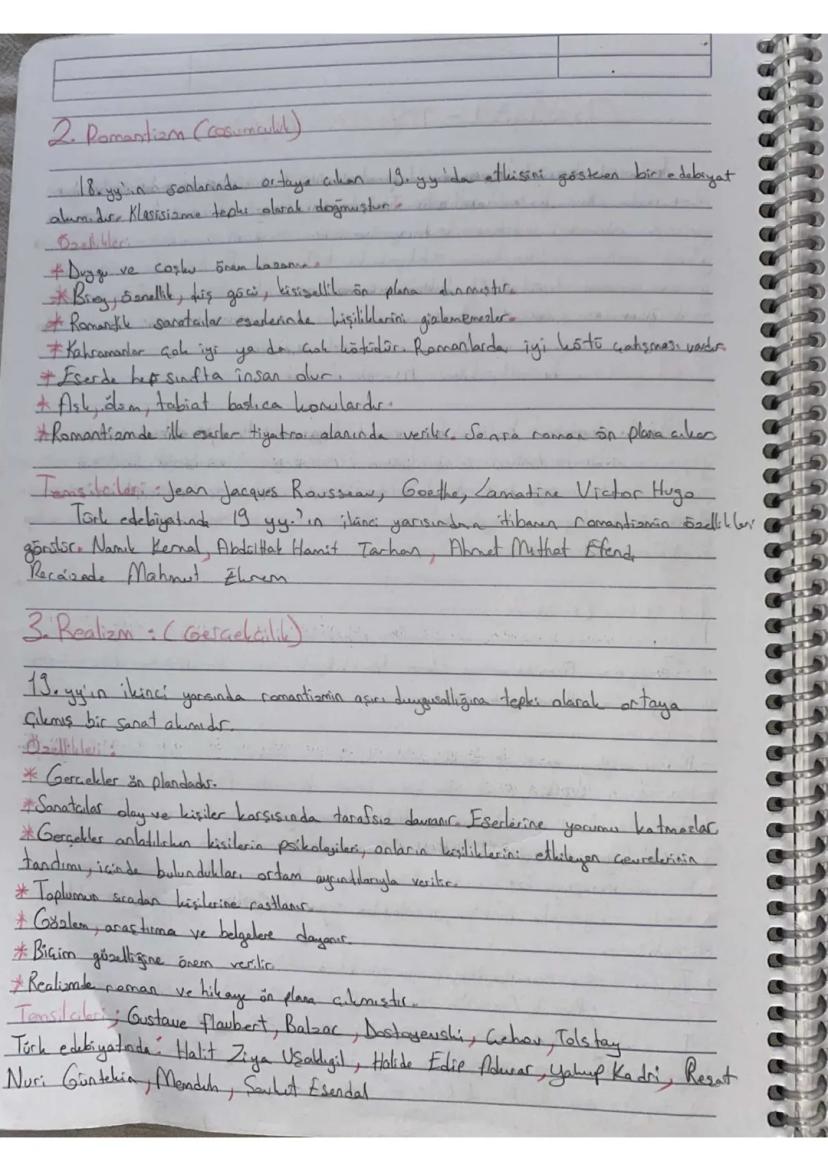 2. Romantizm (Coşumculuk)
18. yy'ın sonlarında ortaya çıkan 19. yy'da etkisini gösteren bir edebiyat
akımıdır. Klasisizme tepki olarak doğmuştur.
Özellikleri
* Duygu ve coşku önem kazanır.
* Birey, öznellik, düş gücü, kişisellik ön plana
* Romantik sanatçılar eserlerinde kişiliklerini gizlememezler.
* Kahramanlar çok iyi ya da çok kötüdür. Romanlarda iyi kötü çatışması vardır.
* Eserde her sınıfta insan olur.
* Aşk, ölüm, tabiat başlıca konulardır.
* Romantizmde ilk eserler tiyatro alanında verilir. Sonra roman ön plana çıkar
Temsilcileri: Jean Jacques Rousseau, Goethe, Lamatine Victor Hugo
Türk edebiyatında 19 yy.'ın ikinci yarısından itibaren romantizmin özellikleri
görülür. Namık Kemal, Abdülhak Hamit Tarhan, Ahmet Mithat Efendi,
Recaizade Mahmut Ekrem
3. Realizm : (Gerçekçilik)
19. yy'ın ikinci yarısında romantizmin aşırı duygusallığına tepki olarak ortaya
çıkmış bir sanat akımıdır.
Özellikleri :
* Gerçekler ön plandadır.
* Sanatçılar olay ve kişiler karşısında tarafsız davranır. Eserlerine yorumu katmazlar
* Gerçekler anlatılırken kişilerin psikolojileri, onların kişiliklerini etkileyen çevrelerinin
tanıtımı, içinde bulundukları ortam ayrıntılarıyla verilir.
* Toplumun sıradan kişilerine rastlanır.
* Gözlem, araştırma ve belgelere dayanır.
* Biçim güzelliğine önem verilir
* Realizmde roman ve hikaye ön plana çıkmıştır.
Temsilcileri; Gustave flaubert, Balzac, Dostoyevski, Çehov, Tolstoy
Türk edebiyatında: Halit Ziya Uşaklıgil, Halide Edip Adıvar, Yakup Kadri, Reşat
Nuri Güntekin, Memduh, Şevket Esendal